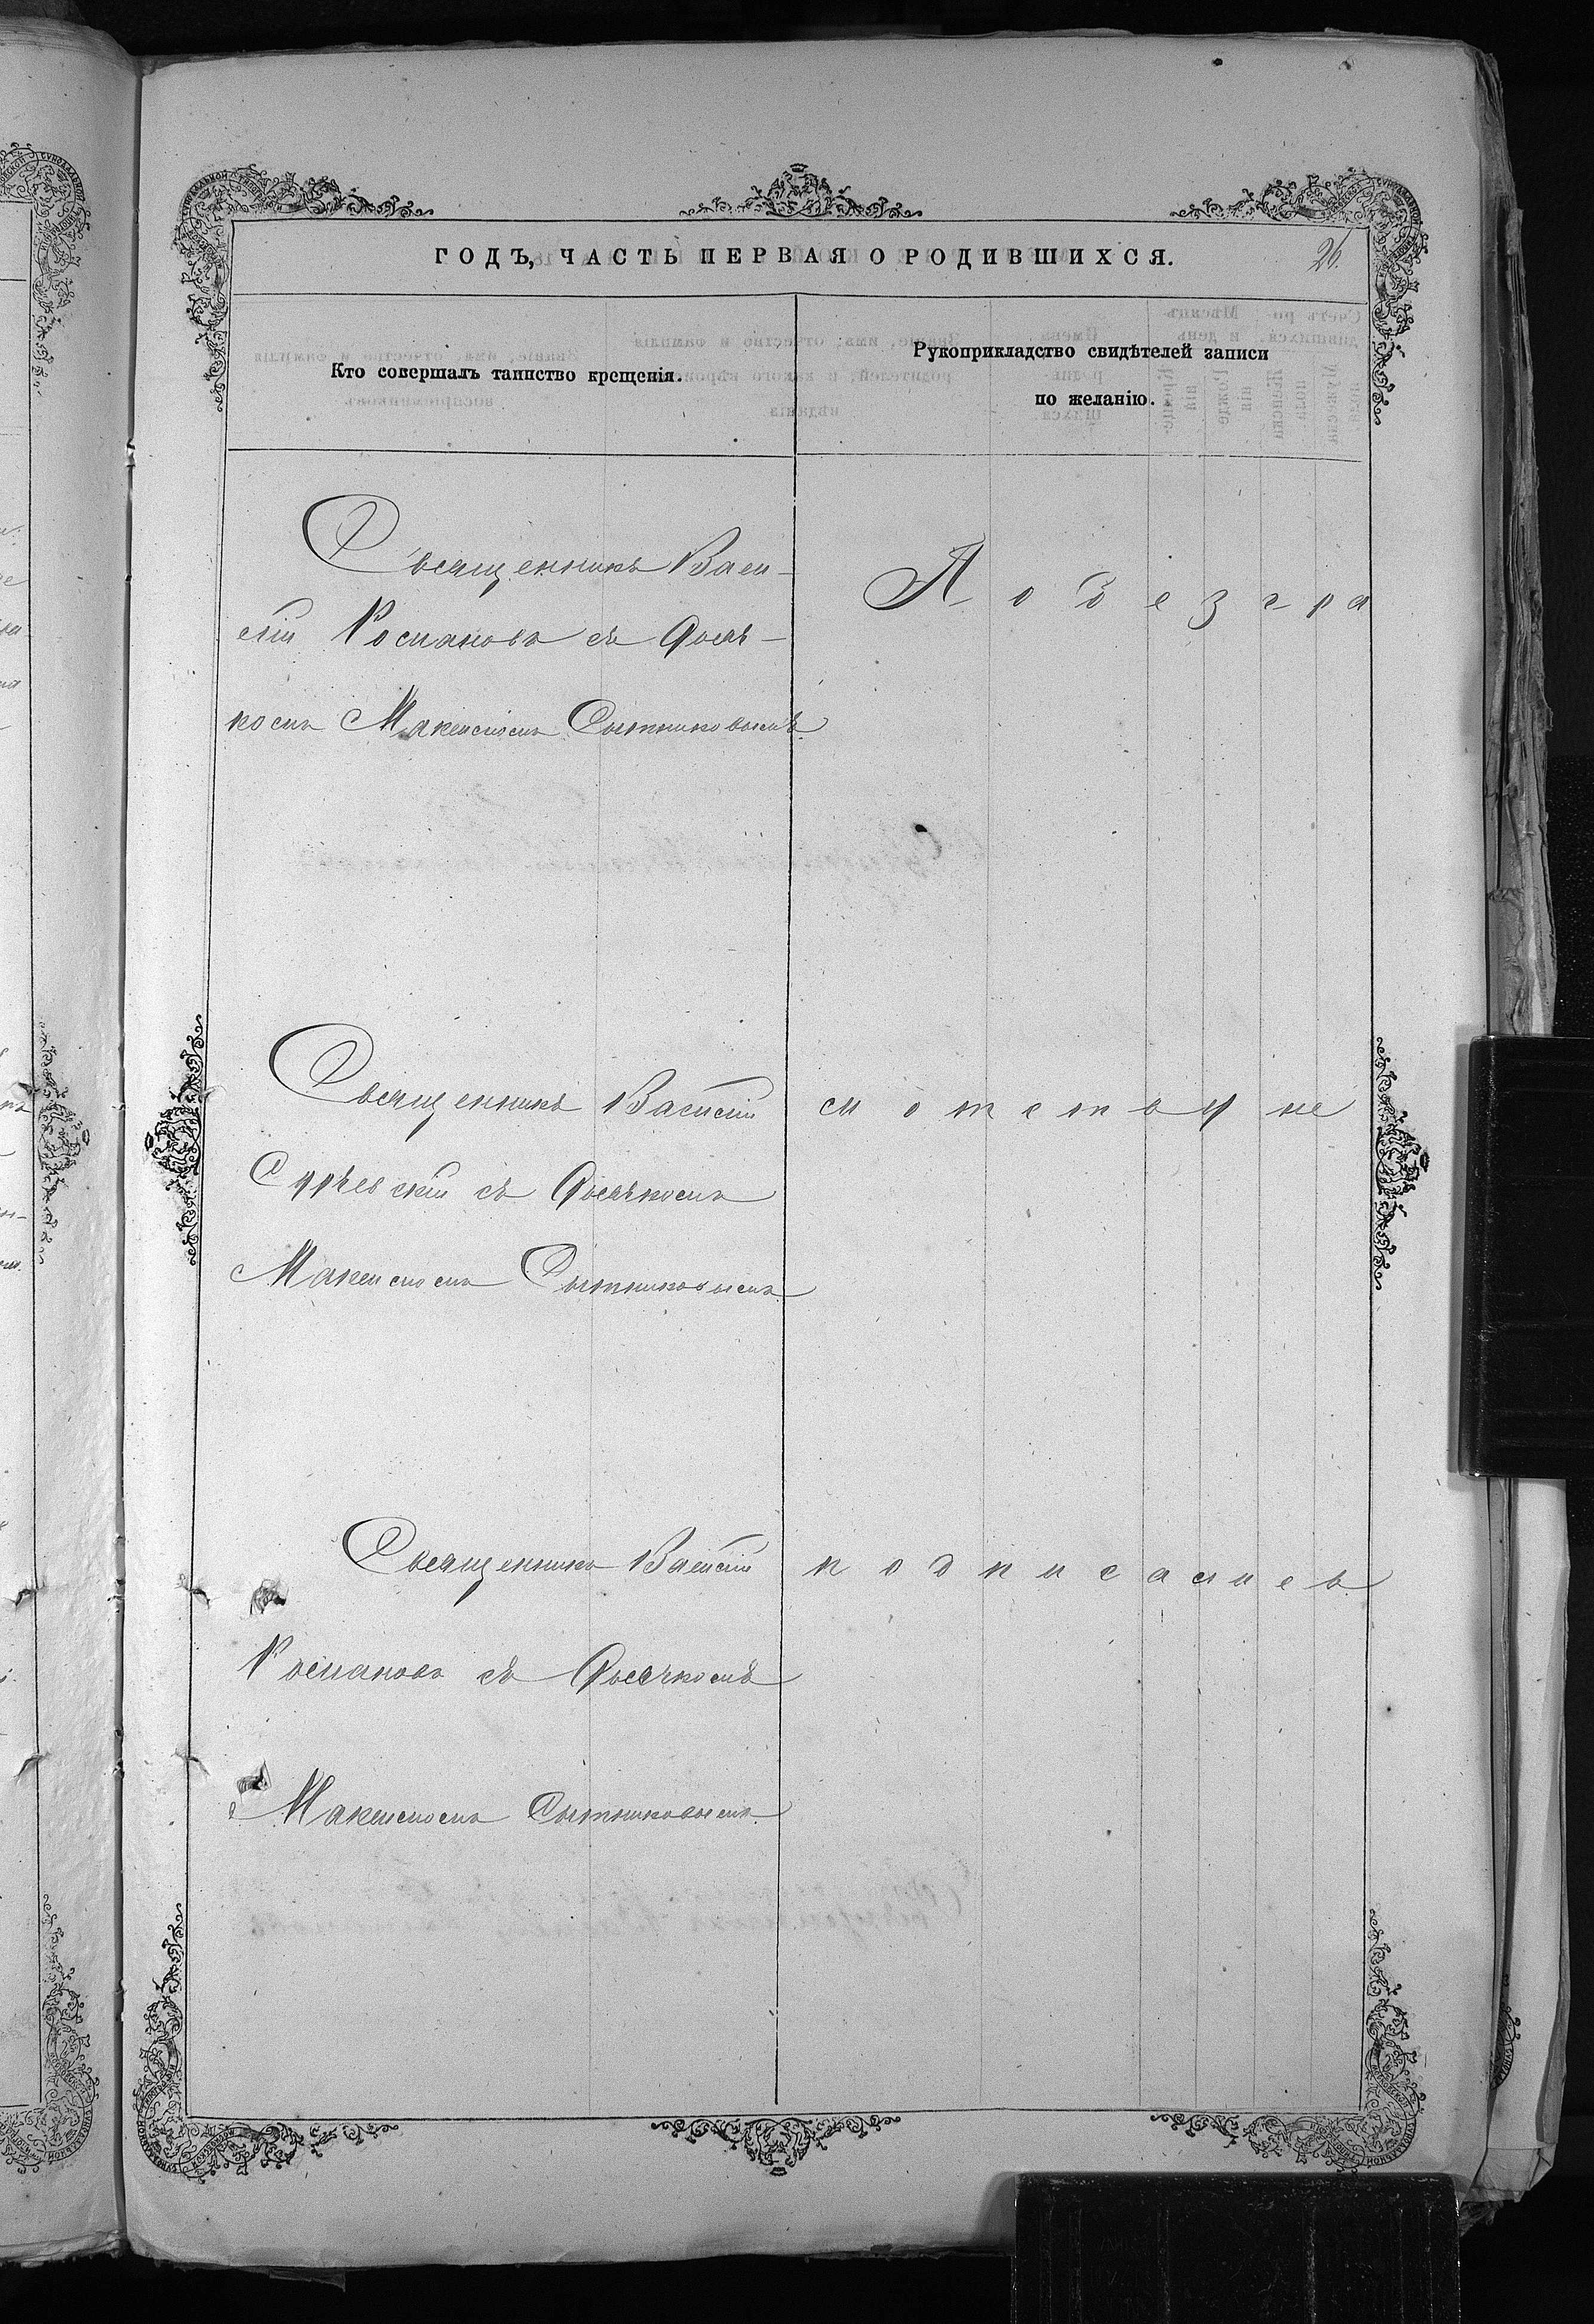 ГОДЪ, ЧАСТЬ ПЕРВАЯ О РОДИВШИХСЯ.
26.
Кто совершалъ таинство крещенія.
Рукоприкладство свидѣтелей записи
по желанію.
Священникъ Васи-
лій Романовъ съ Дьяч-
комъ Максимомъ Сытниковымъ.
Священникъ Василій
съ Дьячкомъ
Максимомъ Сытниковымъ
Священникъ Василій
Романовъ съ Дьячкомъ
Максимомъ Сытниковымъ.
подписались